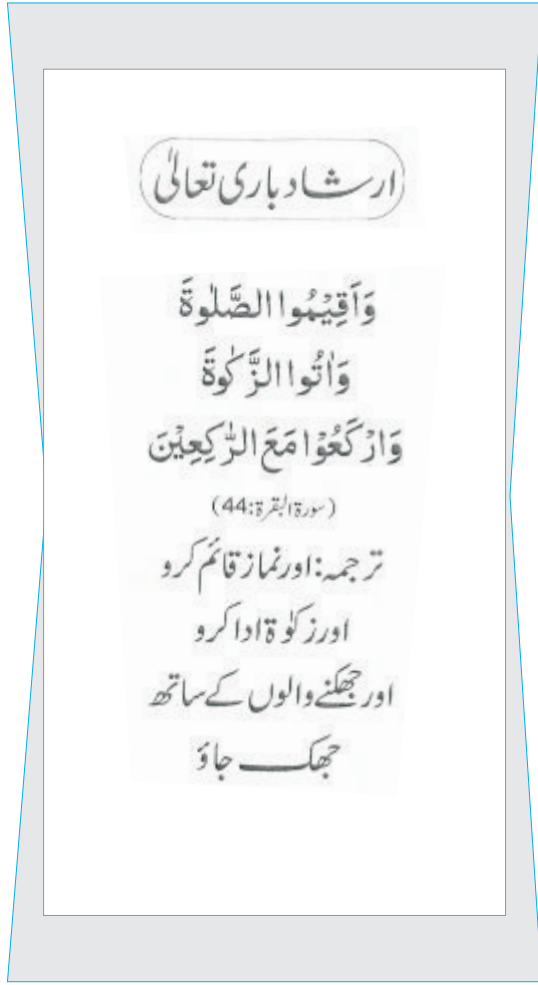 ارشاد باری تعالیٰ
وَاَقِیْمُوا الصَّلٰوةَ
وَاٰتُوا الزَّكٰوةَ
وَارْكَعُوْا مَعَ الرّٰكِعِیْنَ
(سورة البقرة:44)
ترجمہ: اور نماز قائم کرو
اور زکوٰۃ ادا کرو
اور جھکنے والوں کے ساتھ
جھک جاؤ